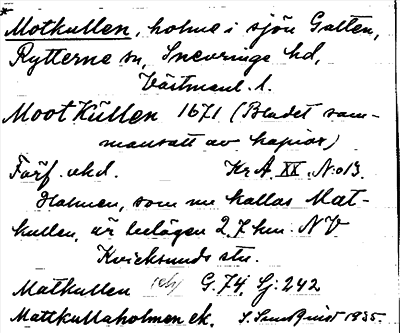 *
Motkullen, holme i sjön Galten,
Rytterne sn, Snevringe hd,
Västmanl. l.
Moot Kullen 1671 (Bladet sam-
mansatt av kopior)
Förf. okd. KrA. XX. N:o 13.
Holmen, som nu kallas Mat-
kullen, är belägen 2,7 km. NV
Kvicksunds stn.
Matkullen G. 74, Gj: 242
Matkullaholmen ek. S. Sundquist 1935